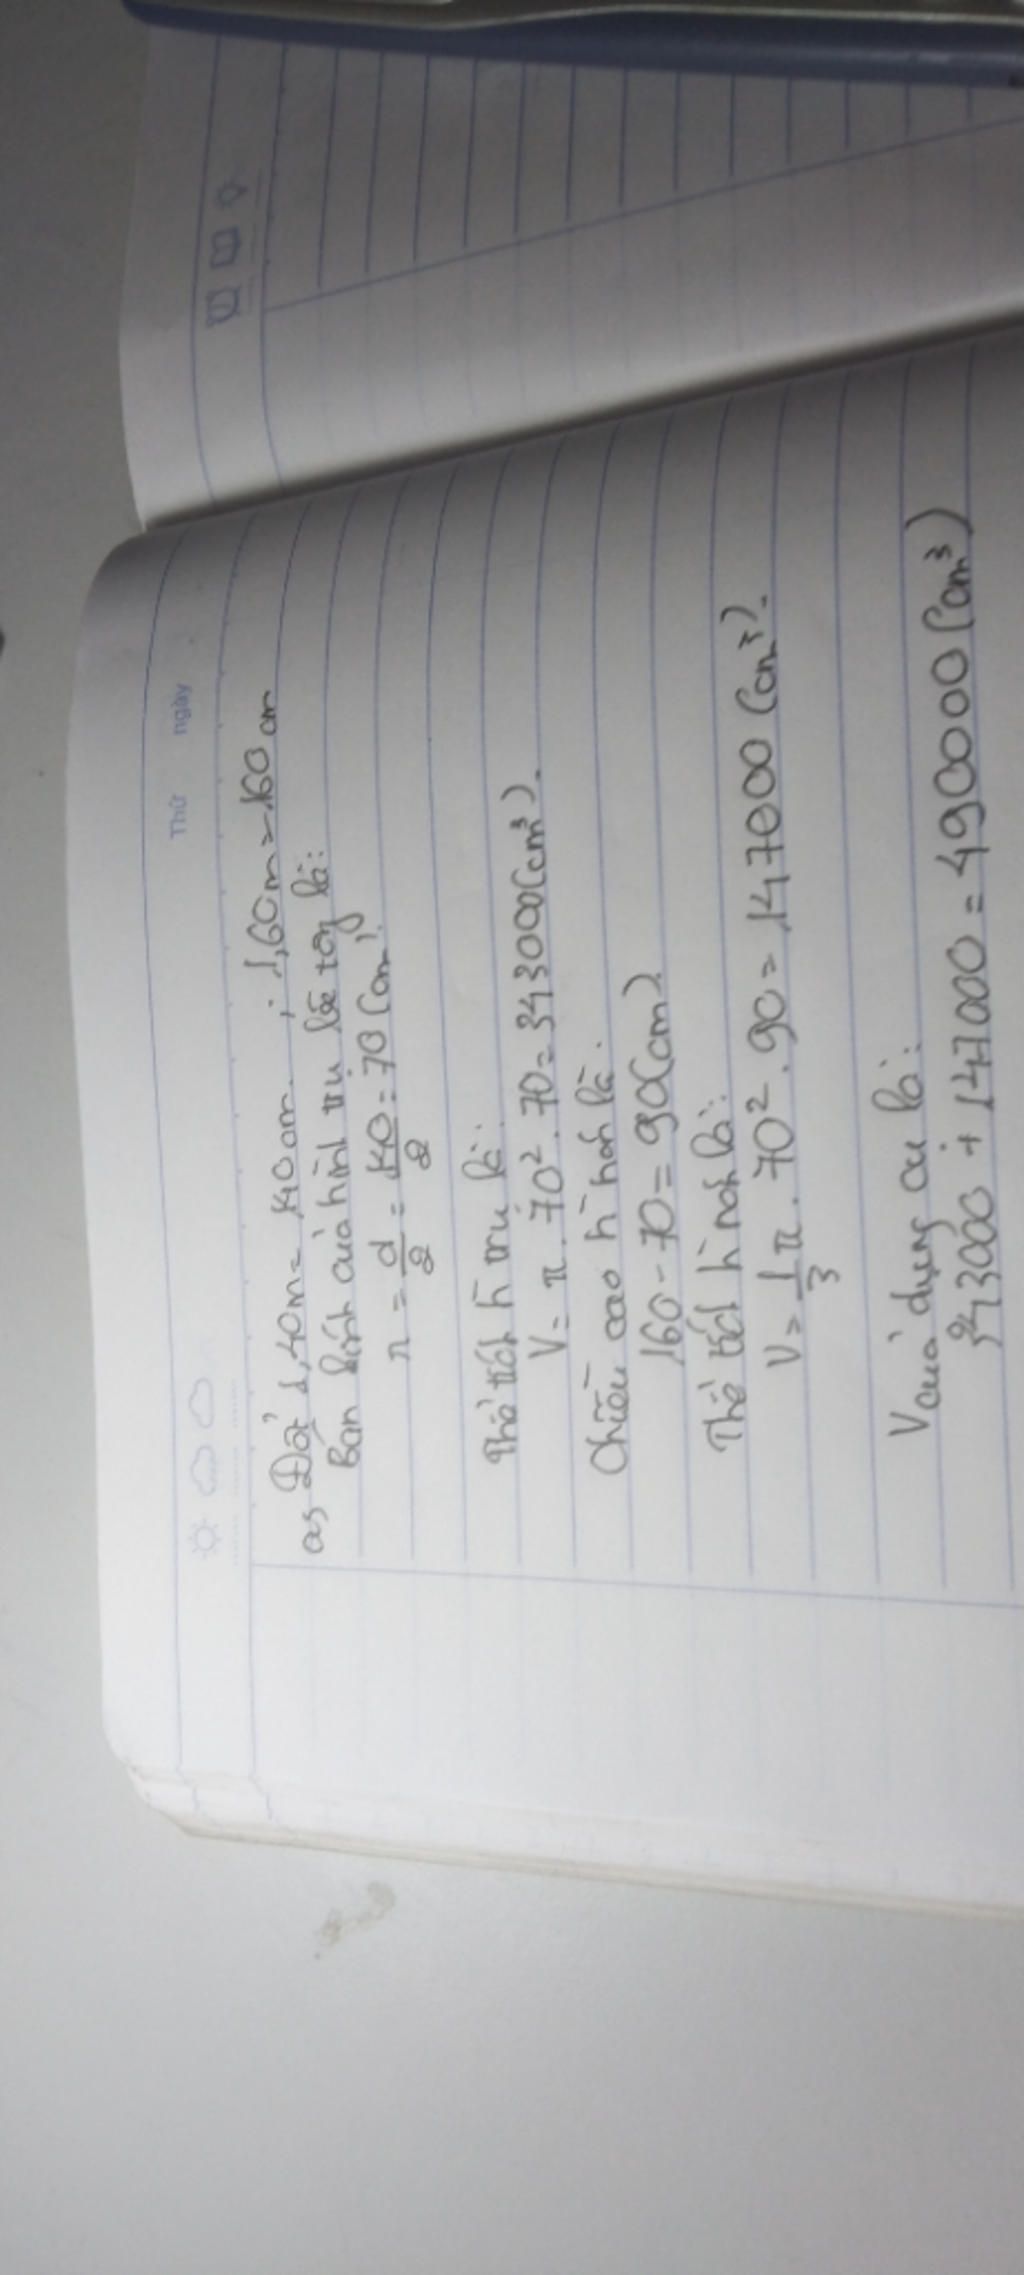 Thứ ngày
a, Đổi 1,40m = 140 cm ; 1,60m = 160 cm
Bán kính của hình trụ
r = d/2 = 140/2 = 70 (cm).
Thể tích h trụ là:
V = π . 70² . 70 = 343000 (cm³).
Chiều cao h nón là.
160 - 70 = 90 (cm)
Thể tích h nón là:
V = 1/3 π . 70² . 90 = 147000 (cm³).
V của dụng cụ là:
343000 + 147000 = 490000 (cm³)